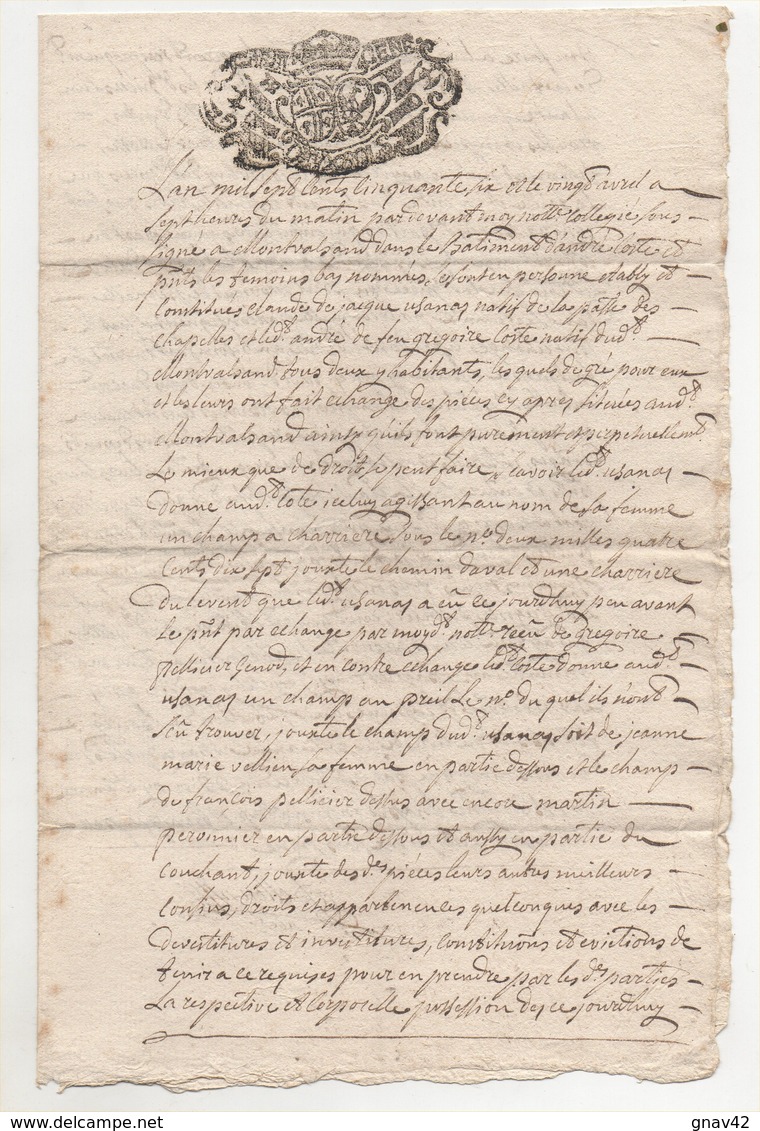 L'an mil sept cents cinquante six et le vingt avril a
sept heures du matin pardevant moy nottre collegié sous
signé a Montvalsand dans le Batiment d'andré Coste et
pnts les temoins bas nommes, se sont en personne etably et
constitués claude de jacque usanas natif de la paˢˢᵉ des
chapelles et led.t andré de feu gregoire Coste natif dud.t
Montvalsand tous deux y habitants, les quels de gré pour eux
et les leurs ont fait echange des piéces cy apres situées aud.t
Montvalsand ainsy qu'ils font purement et perpetuellemt
Le mieux que de droit se peut faire, scavoir led.t usanas
donne aud.t Cote icelluy agissant au nom de sa femme
un champ a charriere sous le no. deux milles quatre
Cents dix sept jouxte le chemin daval et une charriere
du levent que led.t usanas a eu ce jourdhuy peu avant
le pnt par echange par moyd.t nottre receu de gregoire
pellicier Genod, et en contre echange led.t Coste donne aud.t
usanas un champ au preil le no. du quel ils n'ont
sceu trouver, jouxte le champ dud.t usanas soit de jeanne
marie vellien sa femme en partie dessous et le champ
de francois pellicier dessus avec encore martin
peronnier en partie dessous et aussy en partie du
Couchant, jouxte des d.tes pieces leurs autres meilleurs
Confins, droits et appartenences quelconques avec les
devestitures et investitures, constitutions et evictions de
tenir a ce requises pour en prendre par les d.tes parties
La respective et Corporelle possession des ce jourdhuy
gnav42